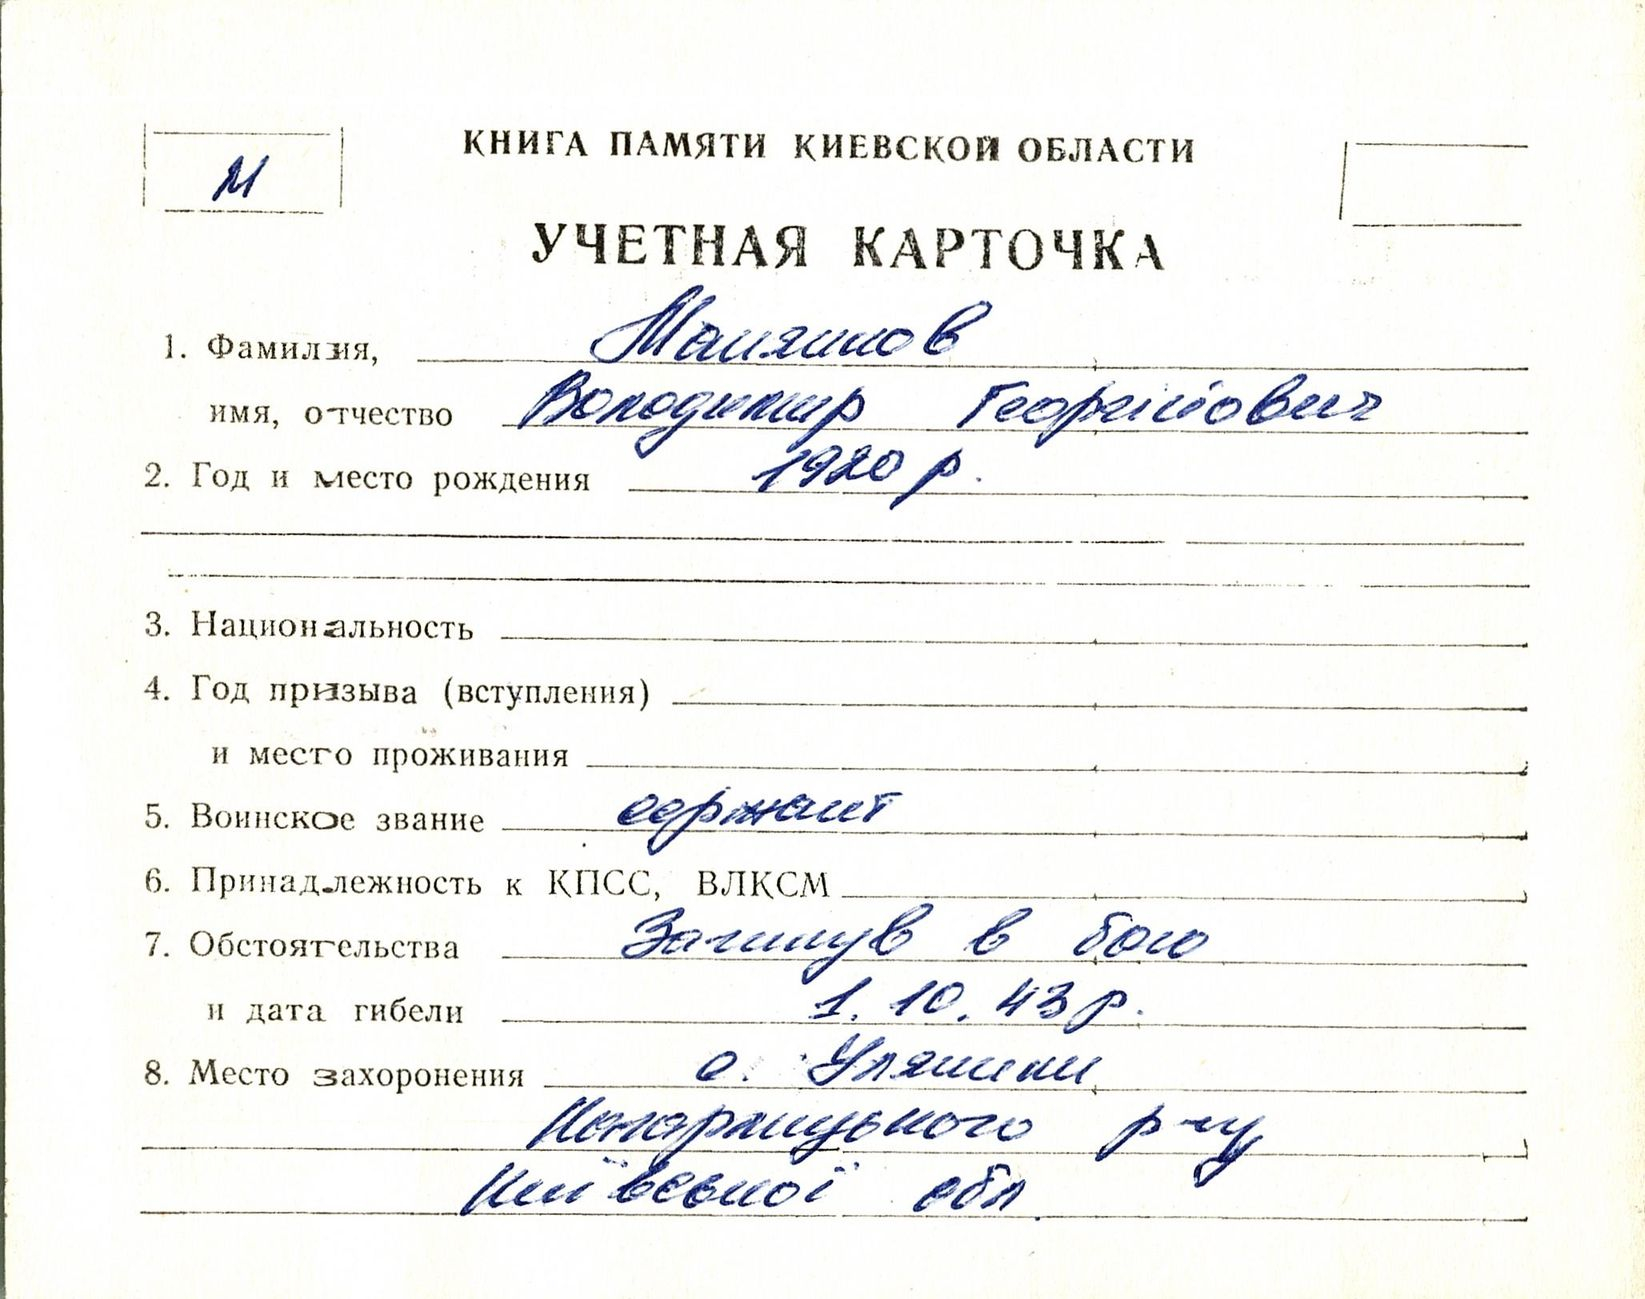 М
КНИГА ПАМЯТИ КИЕВСКОЙ ОБЛАСТИ
УЧЕТНАЯ КАРТОЧКА
1. Фамилия,
имя, отчество Володимир Георгійович
2. Год и место рождения 1920 р.
3. Национальность
4. Год призыва (вступления)
и место проживания
5. Воинское звание сержант
6. Принадлежность к КПСС, ВЛКСМ
7. Обстоятельства Загинув в бою
и дата гибели 1. 10. 43 р.
8. Место захоронения с. Уляники
Кагарлицького р-ну
Київської обл.